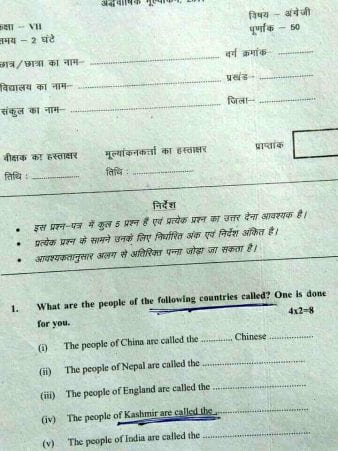 अर्द्धवार्षिक मूल्यांकन,
कक्षा – VII
विषय – अंग्रेजी
समय – 2 घंटे
पूर्णांक – 50
छात्र/छात्रा का नाम–
वर्ग क्रमांक–
विद्यालय का नाम–
प्रखंड–
संकुल का नाम–
जिला–
वीक्षक का हस्ताक्षर
मूल्यांकनकर्त्ता का हस्ताक्षर
प्राप्तांक
तिथि :
तिथि :
निर्देश
• इस प्रश्न–पत्र में कुल 5 प्रश्न हैं एवं प्रत्येक प्रश्न का उत्तर देना आवश्यक है।
• प्रत्येक प्रश्न के सामने उनके लिए निर्धारित अंक एवं निर्देश अंकित है।
• आवश्यकतानुसार अलग से अतिरिक्त पन्ना जोड़ा जा सकता है।
1. What are the people of the following countries called? One is done
for you. 4x2=8
(i) The people of China are called the ............ Chinese ..................
(ii) The people of Nepal are called the ..............................
(iii) The people of England are called the ..............................
(iv) The people of Kashmir are called the ..............................
(v) The people of India are called the ..............................